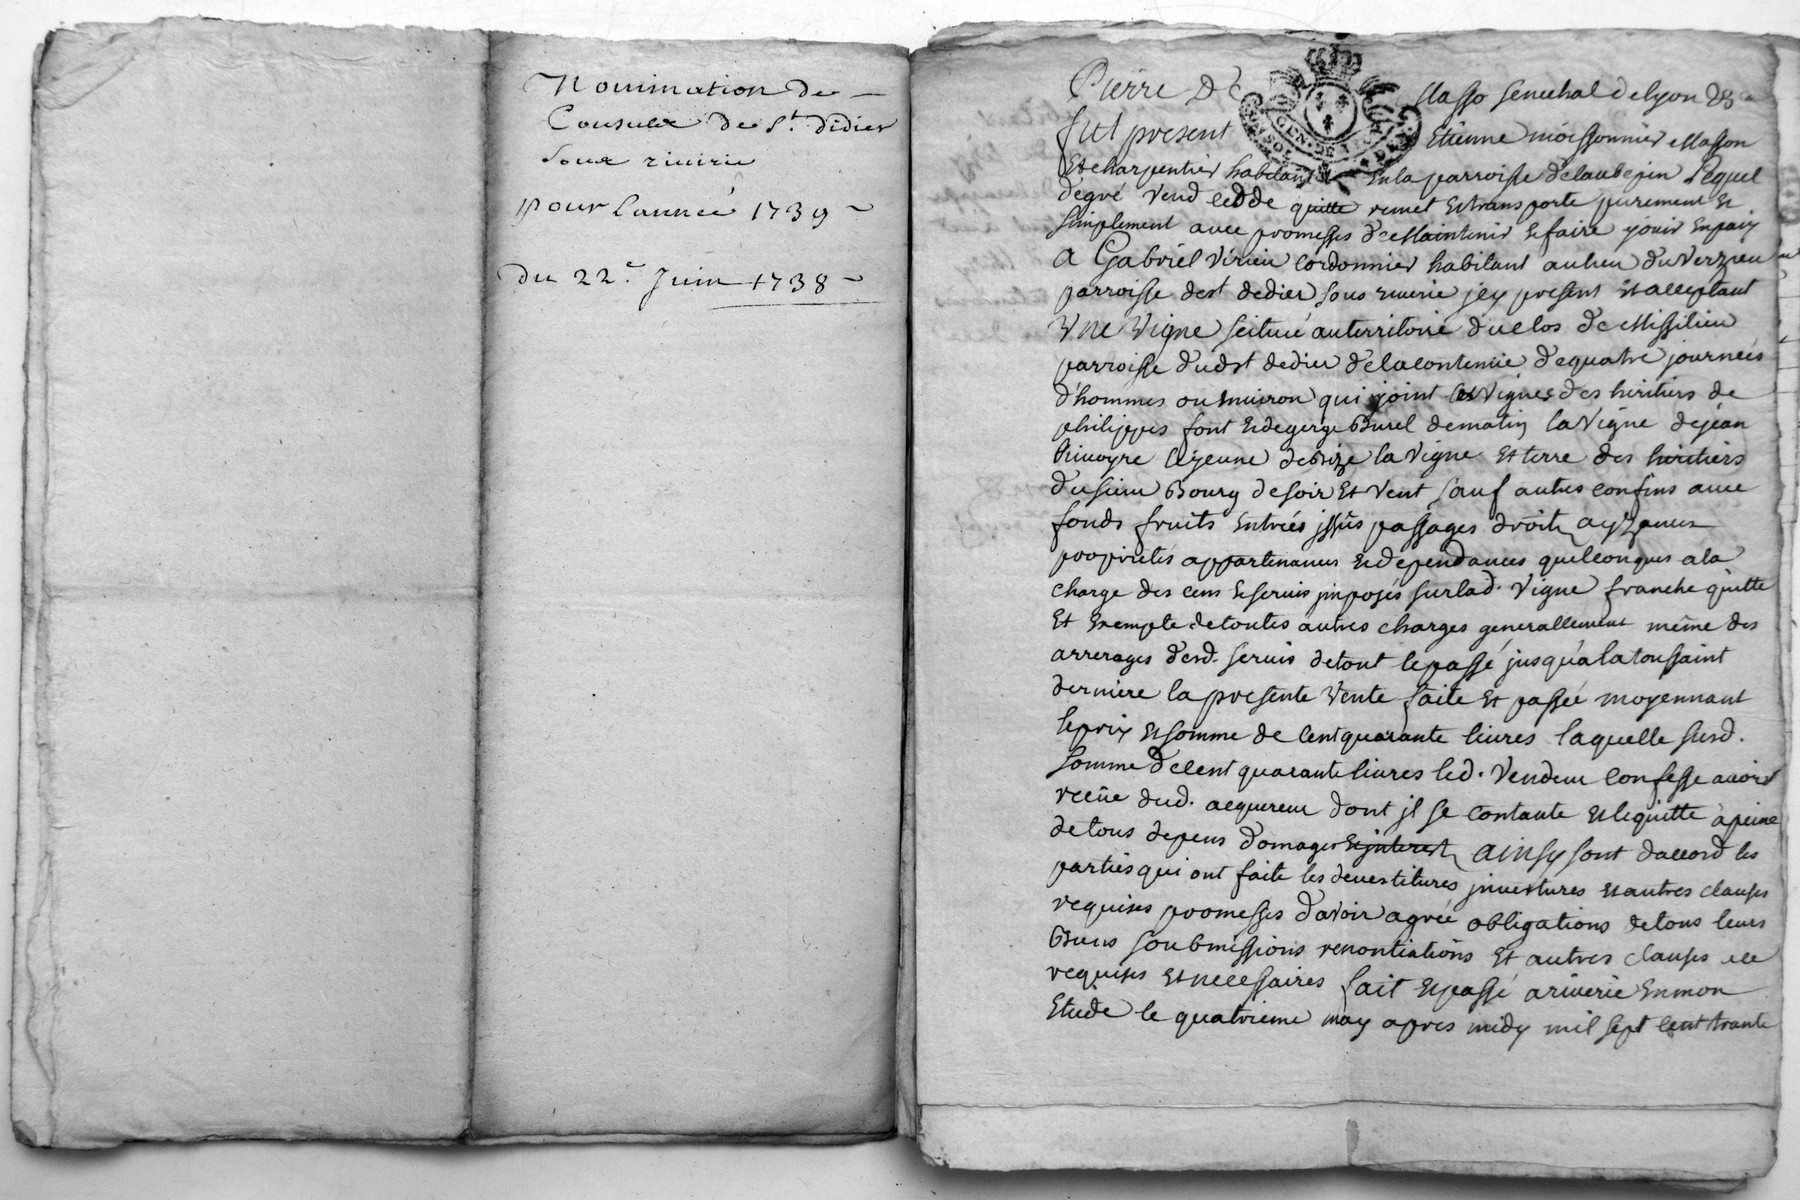 Nomination de
Consulz de St. didier
soux riuirie
pour l'année 1739
du 22e. Juin 1738
Pierre De Masso senechal de lyon
fut present Etienne moissonnier Masson
Et charpentier habitant En la parroisse de laubepin lequel
de gré vend cedde quitte remet Et transporte purement Et
simplement auec promesses de Maintenir Et faire jouir En paix
A Gabriel virieu cordonnier habitant au lieu du Verzieu
parroisse de st dedier sous riuerie jcy present Et acceptant
Vne Vigne scituée au territoire du clos de Missilieu
parroisse dudst dedier de la contenue de quatre journées
d'hommes ou enuiron qui joint les Vignes des heritiers de
philippes font Et de gerge Burel de matin la Vigne de jean
le jeune de bize la Vigne Et terre des heritiers
du sieur Boury de soir Et Vent sauf autres confins auec
fonds fruits Entrées jssües passages droits ayzances
proprietés appartenances Et dependances quelconques a la
charge des cens Et seruis jmposés sur lad. Vigne franche quitte
Et Exempte de toutes autres charges generallement même des
arrerages desd. seruis de tout le passé jusqu'a la toussaint
derniere la presente Vente faite Et passée moyennant
le prix Et somme de cent quarante liures laquelle susd.
somme de cent quarante liures led. Vendeur confesse auoir
reçüe dud. acquereur dont jl se contante Et le quitte à peine
de tous depens domages Et jnterest Ainsy sont daccord les
parties qui ont faite les deuestitures jnuestures Et autres clauses
requises promesses d'avoir agréé obligations de tous leurs
Biens soubmissions renontiations Et autres clauses
requises Et necessaires fait Et passé a riuerie En mon
Etude le quatrieme may apres midy mil sept cent trante